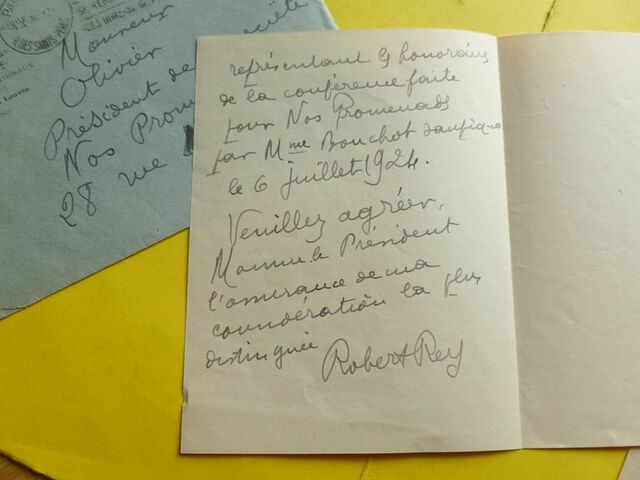 Monsieur
Olivier
Président de
Nos Prom
28 rue
représentant les honoraires
de la conférence faite
pour Nos Promenades
par Mme Bouchot
le 6 juillet 1924.
Veuillez agréer,
Monsieur le Président
l'assurance de ma
considération la plus
distinguée
Robert Rey